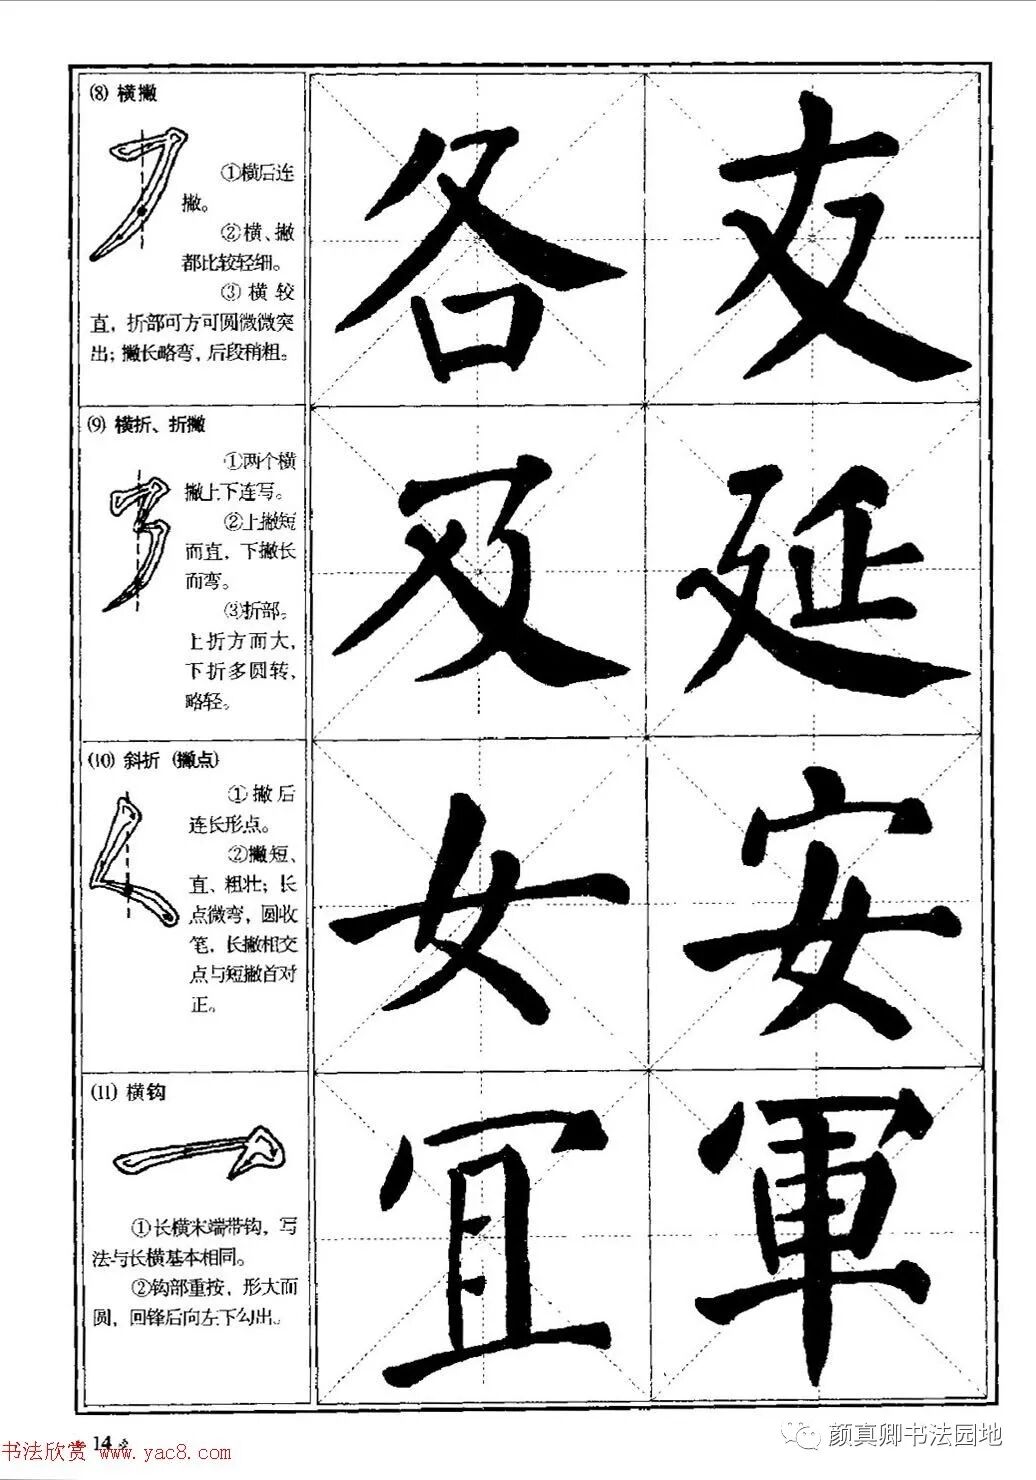 ⑻ 横撇
①横后连
撇。
②横、撇
都比较轻细。
③横较
直，折部可方可圆微微突
出；撇长略弯，后段稍粗。
各 支
⑼ 横折、折撇
①两个横
撇上下连写。
②上撇短
而直，下撇长
而弯。
③折部。
上折方而大，
下折多圆转，
略轻。
及 延
⑽ 斜折（撇点）
①撇后
连长形点。
②撇短、
直、粗壮；长
点微弯，圆收
笔，长撇相交
点与短撇首对
正。
女 安
⑾ 横钩
①长横末端带钩，写
法与长横基本相同。
②钩部重按，形大而
圆，回锋后向左下勾出。
冝 軍
14
书法欣赏 www.yac8.com
颜真卿书法园地